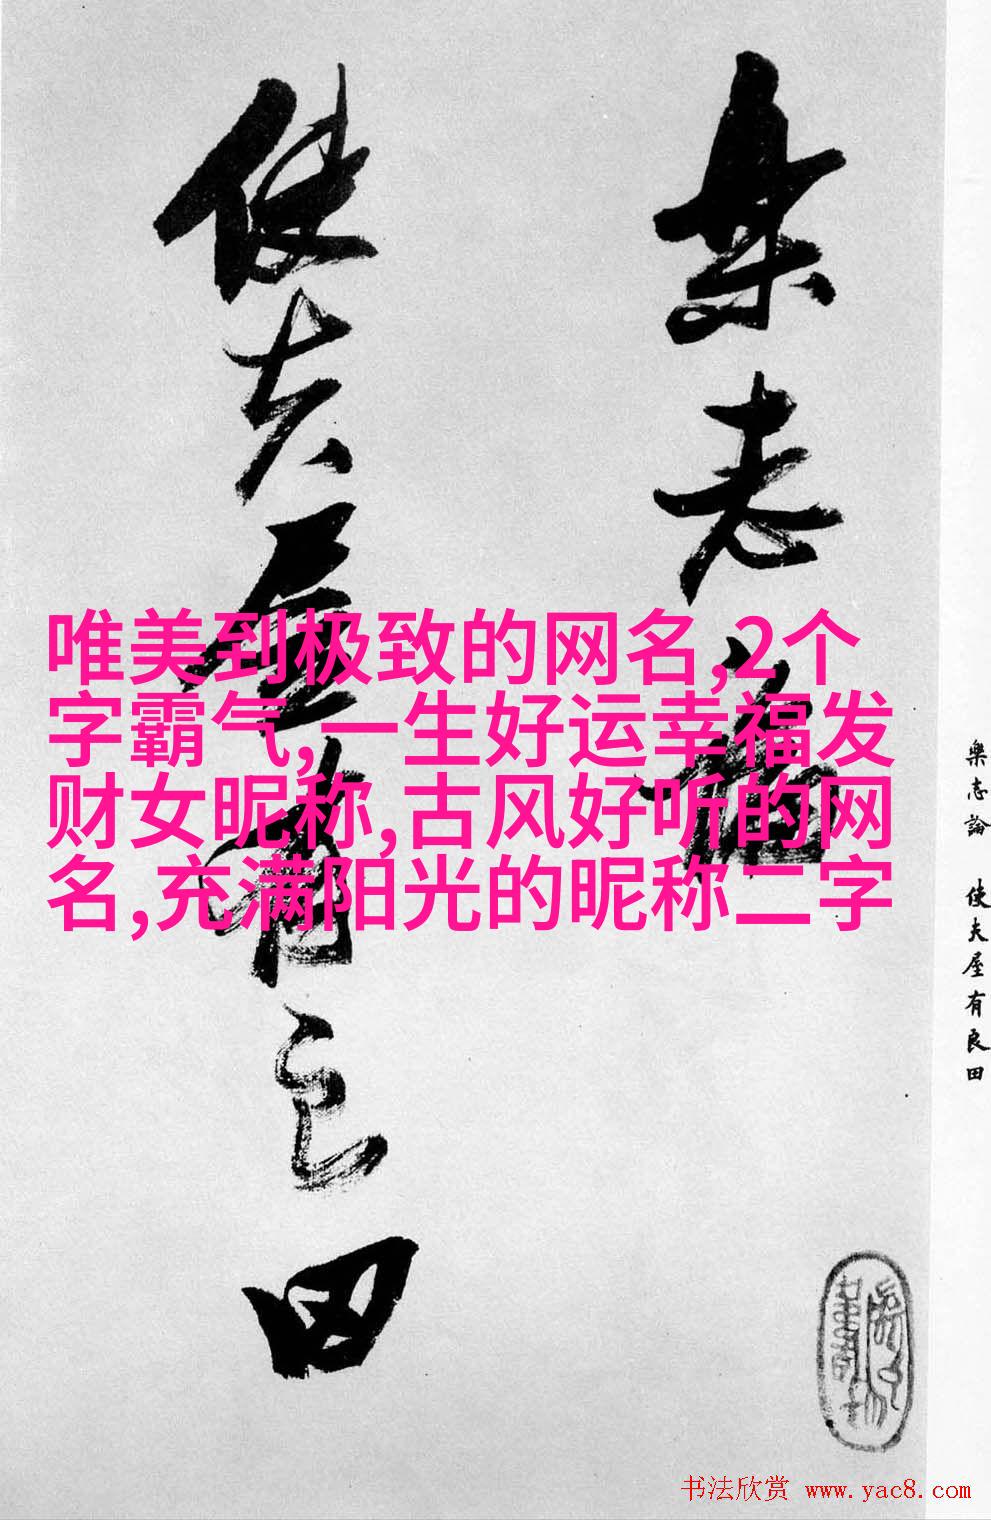 樂志論
使夫屋有良田
唯美到极致的网名,2个
字霸气,一生好运幸福发
财女昵称,古风好听的网
名,充满阳光的昵称二字
樂志論 使夫屋有良田
书法欣赏 www.yac8.com